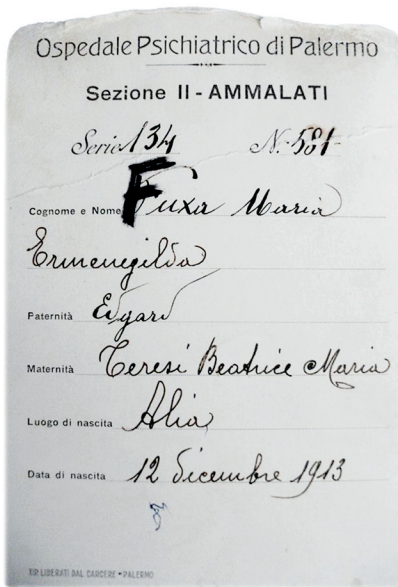 Ospedale Psichiatrico di Palermo
Sezione II - AMMALATI
Serie 134 N. 581
Cognome e Nome Fuxa Maria
Ermenegilda
Paternità Edgard
Maternità Teresi Beatrice Maria
Luogo di nascita Alia
Data di nascita 12 dicembre 1913
TIP. LIBERATI DAL CARCERE • PALERMO